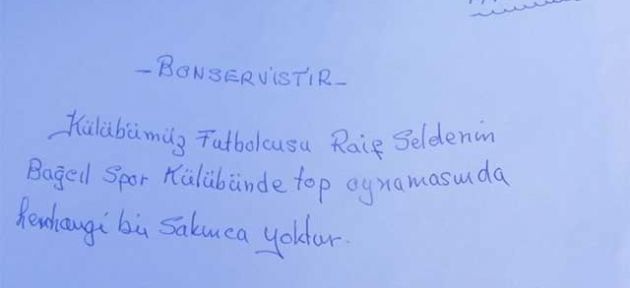 - BONSERVİSTİR -
Kulübümüz Futbolcusu Raif Seldenin
Bağcıl Spor Kulübünde top oynamasında
herhangi bir Sakınca yoktur.